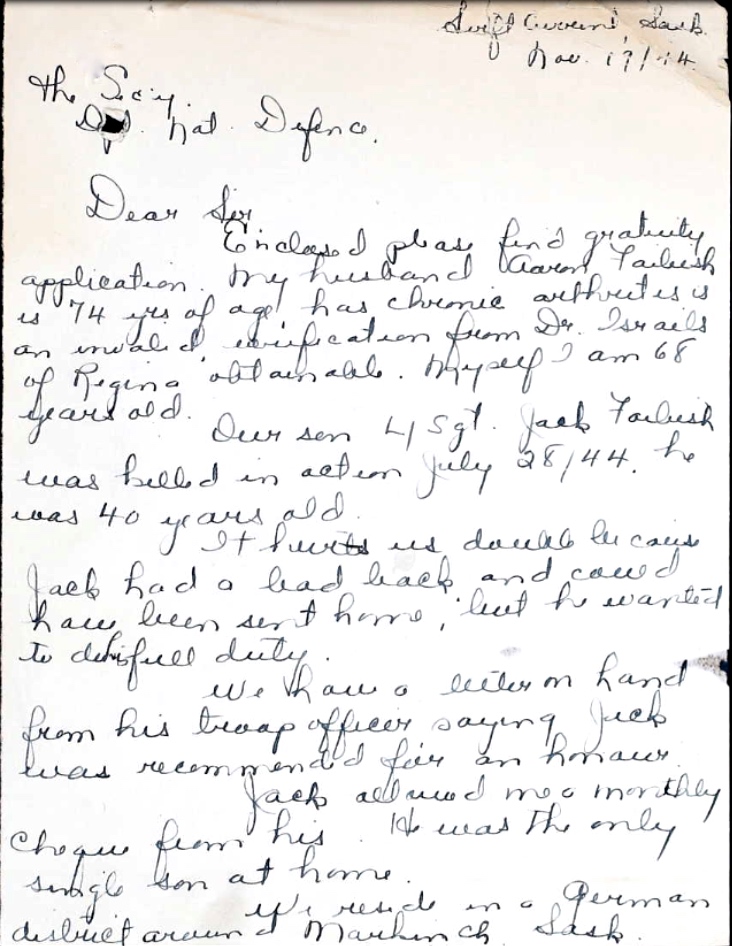 Swift Current, Sask.
Nov. 17/44.
The Sec'y.
Dpt. Nat. Defence.
Dear Sir
Enclosed please find gratuity
application. My husband Aaron Faibush
is 74 yrs of age has chronic arthrites is
an invalid, verification from Dr. Israels
of Regina obtainable. Myself I am 68
years old.
Our son L/Sgt. Jack Faibush
was killed in action July 28/44. he
was 40 years old.
It hurts us double because
Jack had a bad back and could
have been sent home, but he wanted
to do his full duty.
We have a letter on hand
from his troop officer saying Jack
was recommended for an honour.
Jack allowed me a monthly
cheque from his . He was the only
single son at home.
We reside in a German
district around Markinch Sask.